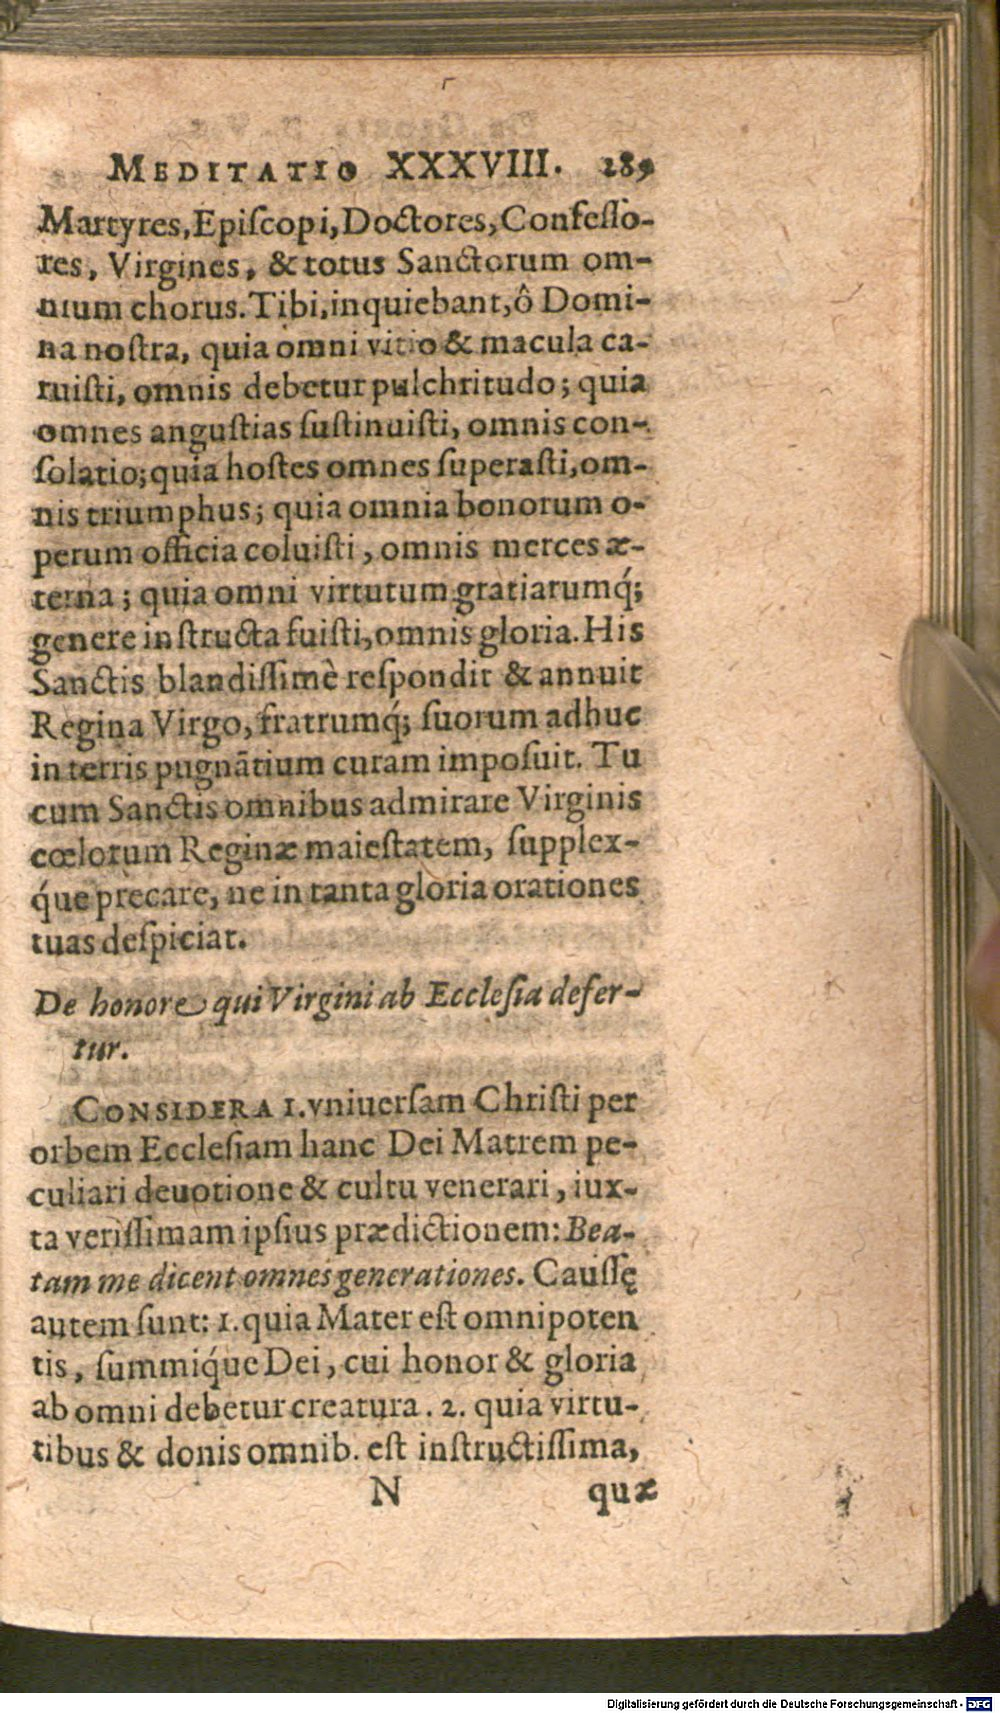 MEDITATIO XXXVIII. 289
Martyres, Epiſcopi, Doctores, Confeſſo-
res, Virgines, & totus Sanctorum om-
nium chorus. Tibi, inquiebant, ô Domi-
na noſtra, quia omni vitio & macula ca-
ruiſti, omnis debetur pulchritudo; quia
omnes anguſtias ſuſtinuiſti, omnis con-
ſolatio; quia hoſtes omnes ſuperaſti, om-
nis triumphus; quia omnia bonorum o-
perum officia coluiſti, omnis merces æ-
terna; quia omni virtutum gratiarumq́;
genere inſtructa fuiſti, omnis gloria. His
Sanctis blandiſſimè reſpondit & annuit
Regina Virgo, fratrumq́; ſuorum adhuc
in terris pugnãtium curam impoſuit. Tu
cum Sanctis omnibus admirare Virginis
cœlorum Reginæ maieſtatem, ſupplex-
q́ue precare, ne in tanta gloria orationes
tuas deſpiciat.
De honore qui Virgini ab Eccleſia defer-
tur.
CONSIDERA 1. vniuerſam Chriſti per
orbem Eccleſiam hanc Dei Matrem pe-
culiari deuotione & cultu venerari, iux-
ta veriſſimam ipſius prædictionem: Bea-
tam me dicent omnes generationes. Cauſſę
autem ſunt: 1. quia Mater eſt omnipoten
tis, ſummiq́ue Dei, cui honor & gloria
ab omni debetur creatura. 2. quia virtu-
tibus & donis omnib. eſt inſtructiſſima,
N quæ
Digitalisierung gefördert durch die Deutsche Forschungsgemeinschaft - DFG